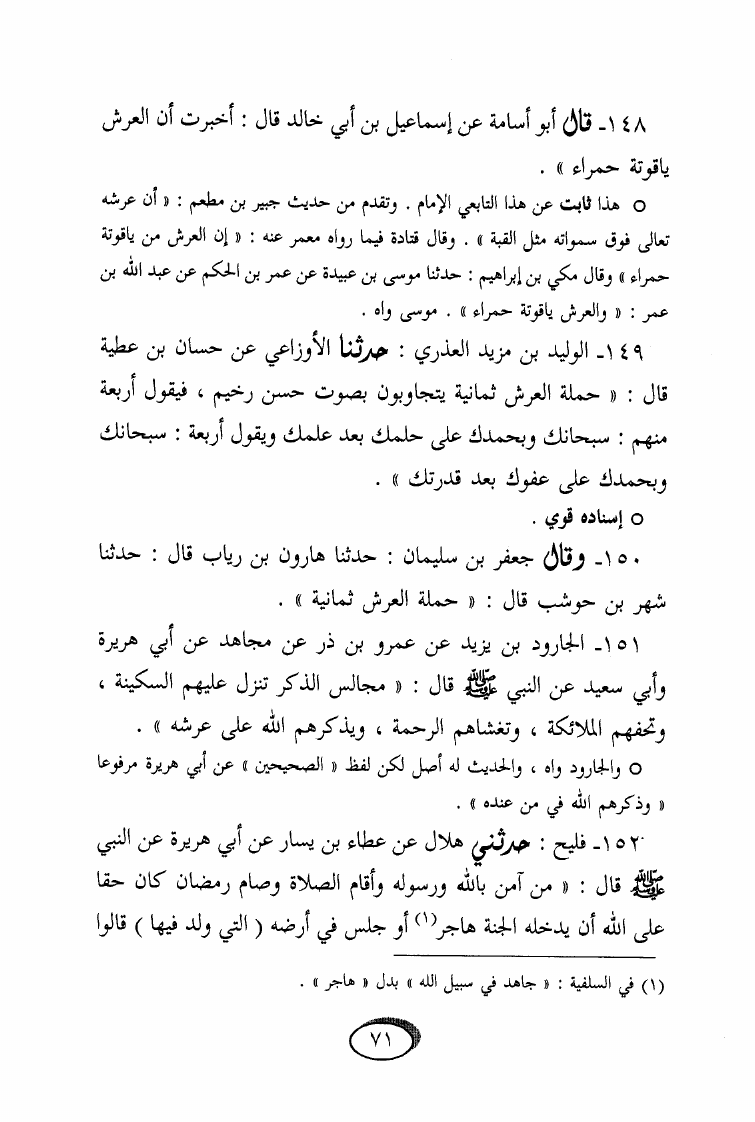 ١٤٨ـ قال أبو أسامة عن إسماعيل بن أبي خالد قال : أخبرت أن العرش
ياقوتة حمراء » .
○ هذا ثابت عن هذا التابعي الإمام . وتقدم من حديث جبير بن مطعم : « أن عرشه
تعالى فوق سمواته مثل القبة » . وقال قتادة فيما رواه معمر عنه : « إن العرش من ياقوتة
حمراء » وقال مكي بن إبراهيم : حدثنا موسى بن عبيدة عن عمر بن الحكم عن عبد الله بن
عمر : « والعرش ياقوتة حمراء » . موسى واه .
١٤٩ـ الوليد بن مزيد العذري : حدثنا الأوزاعي عن حسان بن عطية
قال : « حملة العرش ثمانية يتجاوبون بصوت حسن رخيم ، فيقول أربعة
منهم : سبحانك وبحمدك على حلمك بعد علمك ويقول أربعة : سبحانك
وبحمدك على عفوك بعد قدرتك » .
○ إسناده قوي .
١٥٠ـ وقال جعفر بن سليمان : حدثنا هارون بن رياب قال : حدثنا
شهر بن حوشب قال : « حملة العرش ثمانية » .
١٥١ـ الجارود بن يزيد عن عمرو بن ذر عن مجاهد عن أبي هريرة
وأبي سعيد عن النبي ﷺ قال : « مجالس الذكر تنزل عليهم السكينة ،
وتحفهم الملائكة ، وتغشاهم الرحمة ، ويذكرهم الله على عرشه » .
○ والجارود واه ، والحديث له أصل لكن لفظ « الصحيحين » عن أبي هريرة مرفوعا
« وذكرهم الله في من عنده » .
١٥٢ـ فليح : حدثني هلال عن عطاء بن يسار عن أبي هريرة عن النبي
ﷺ قال : « من آمن بالله ورسوله وأقام الصلاة وصام رمضان كان حقا
على الله أن يدخله الجنة هاجر(١) أو جلس في أرضه ( التي ولد فيها ) قالوا
(١) في السلفية : « جاهد في سبيل الله » بدل « هاجر » .
٧١